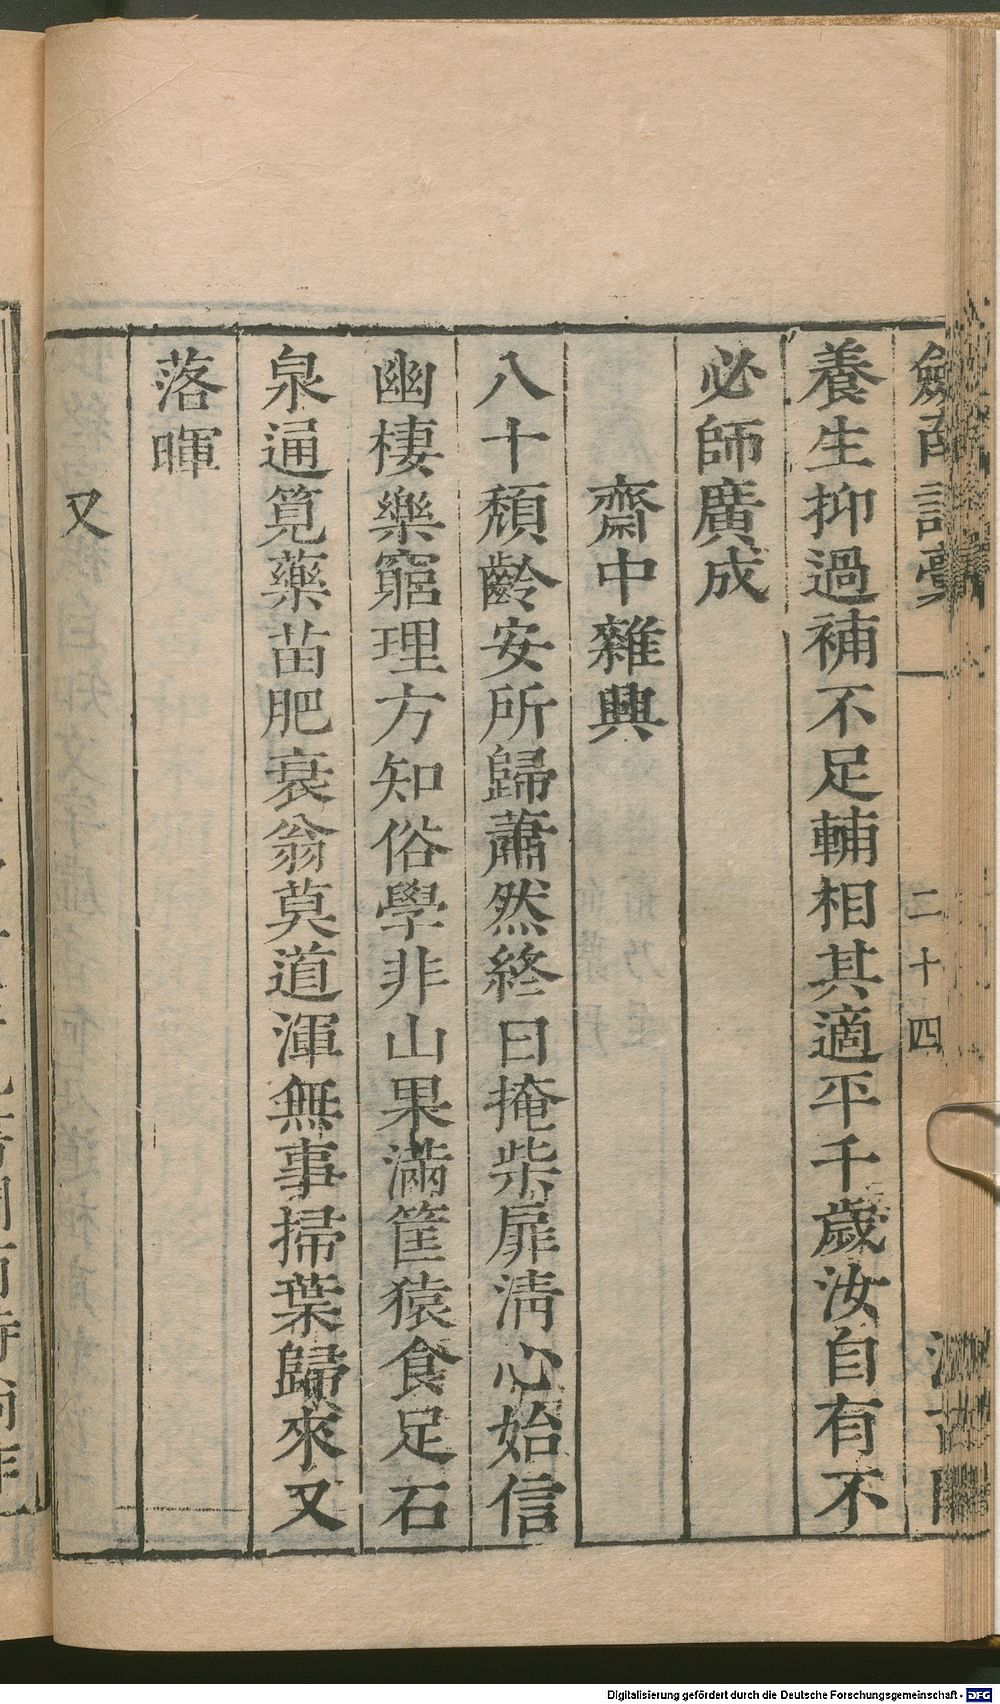 劍南詩稾
二十四
養生抑過補不足輔相其適平千歲汝自有不
必師廣成
齋中雜興
八十頹齡安所歸蕭然終日掩柴扉清心始信
幽棲樂窮理方知俗學非山果滿筐猿食足石
泉通筧藥苗肥衰翁莫道渾無事掃葉歸來又
落暉
又
Digitalisierung gefördert durch die Deutsche Forschungsgemeinschaft - DFG